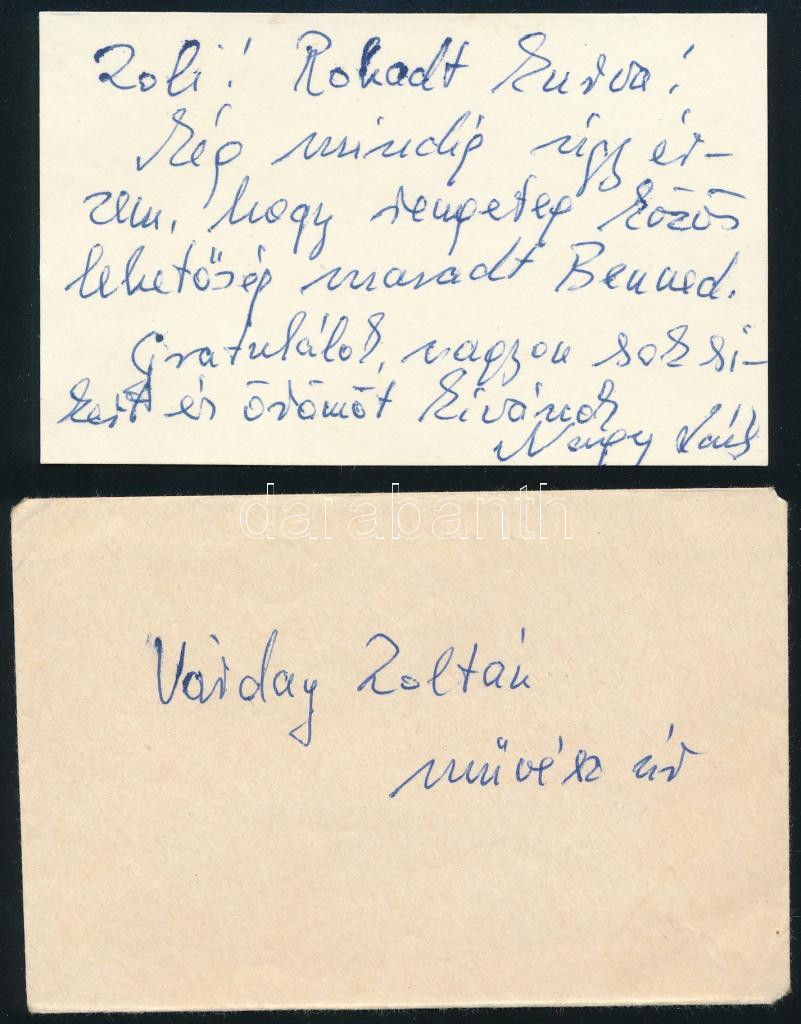 Zoli! Rohadt kurva!
Még mindig úgy ér-
zem, hogy rengeteg közös
lehetőség maradt Benned.
Gratulálok, nagyon sok si-
kert és örömöt kívánok
Nagy
darabanth
Várday Zoltán
művész úr